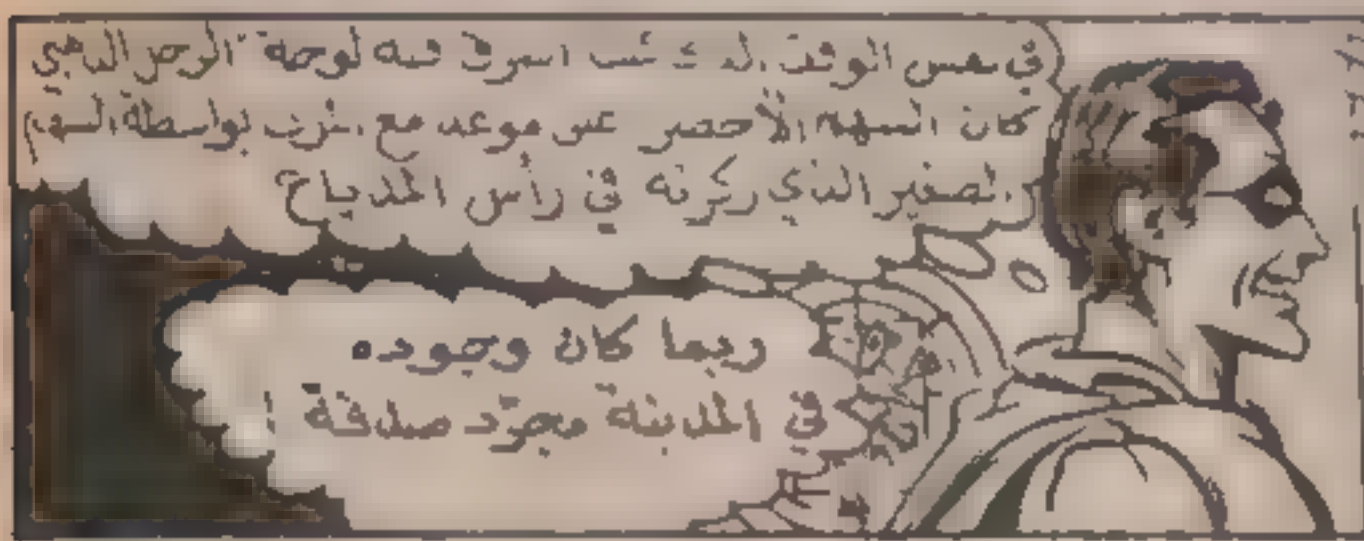 في نفس الوقت الذي كنت اسرق فيه لوحة "الرجل الذهبي
كان السهم الأخضر على موعد مع بواسطة السهم
الصغير الذي ركزته في رأس المذياع
ربما كان وجوده
في المدينة مجرّد صدفة !